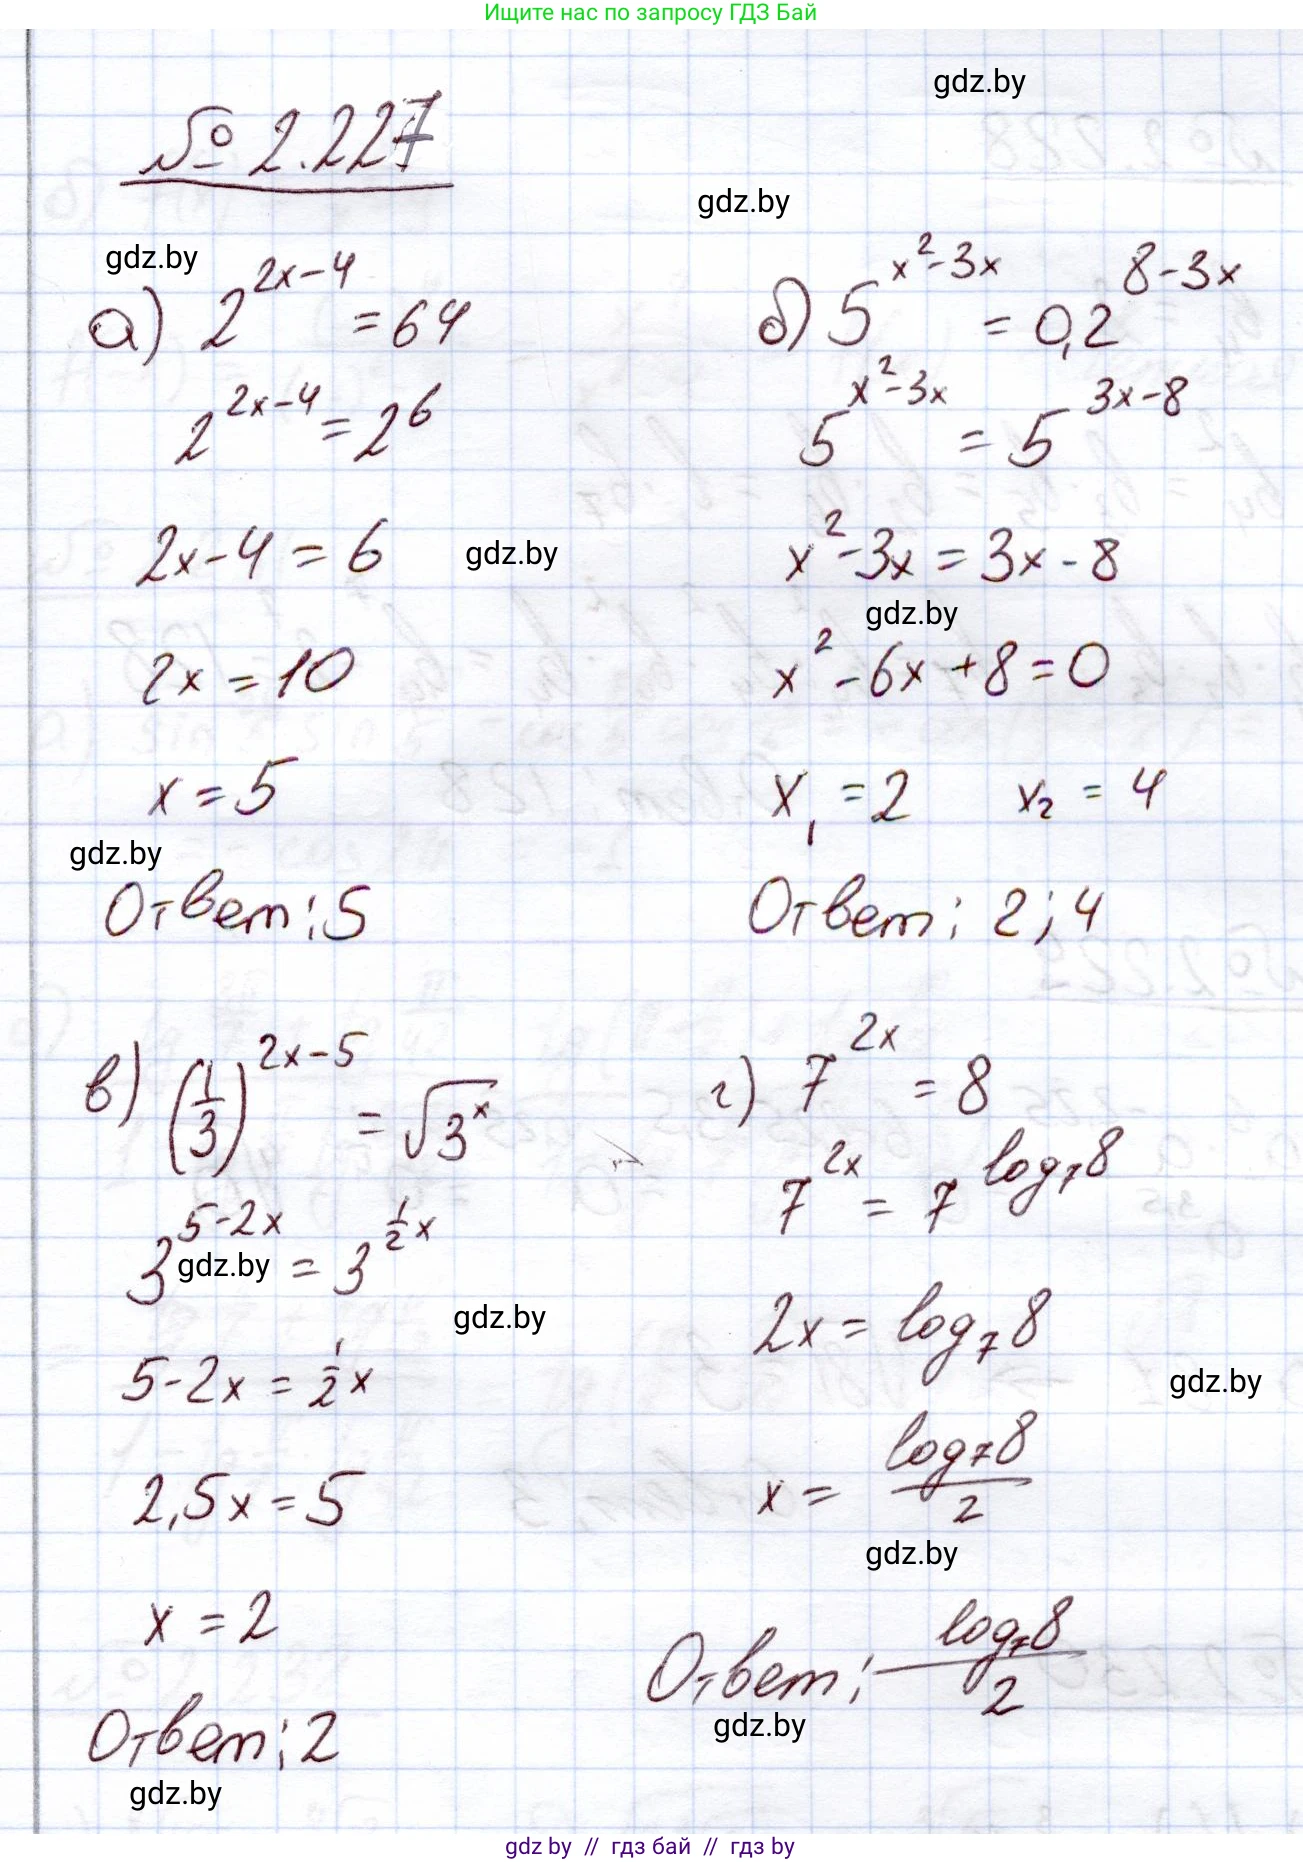 Ищите нас по запросу ГДЗ Бай
gdz.by
№ 2.227
gdz.by
gdz.by
а) 2^{2x-4} = 64
2^{2x-4} = 2^6
2x-4 = 6
gdz.by
2x = 10
x = 5
gdz.by
Ответ: 5
б) 5^{x^2-3x} = 0,2^{8-3x}
5^{x^2-3x} = 5^{3x-8}
x^2-3x = 3x-8
gdz.by
x^2-6x+8=0
x_1 = 2 x_2 = 4
Ответ: 2; 4
в) (1/3)^{2x-5} = √3^x
3^{5-2x} = 3^{1/2 x}
gdz.by
gdz.by
5-2x = 1/2 x
2,5x = 5
x = 2
Ответ: 2
gdz.by
г) 7^{2x} = 8
7^{2x} = 7^{log_7 8}
2x = log_7 8
gdz.by
x = log_7 8 / 2
gdz.by
Ответ: log_7 8 / 2
gdz.by
gdz by // гдз бай // гдз by